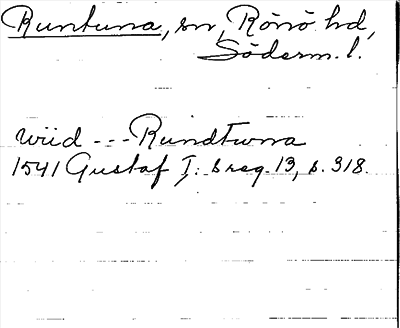 Runtuna, sn, Rönö hd,
Söderm. l.
wiid --- Rundtwna
1541 Gustaf I: s reg. 13, s. 318.